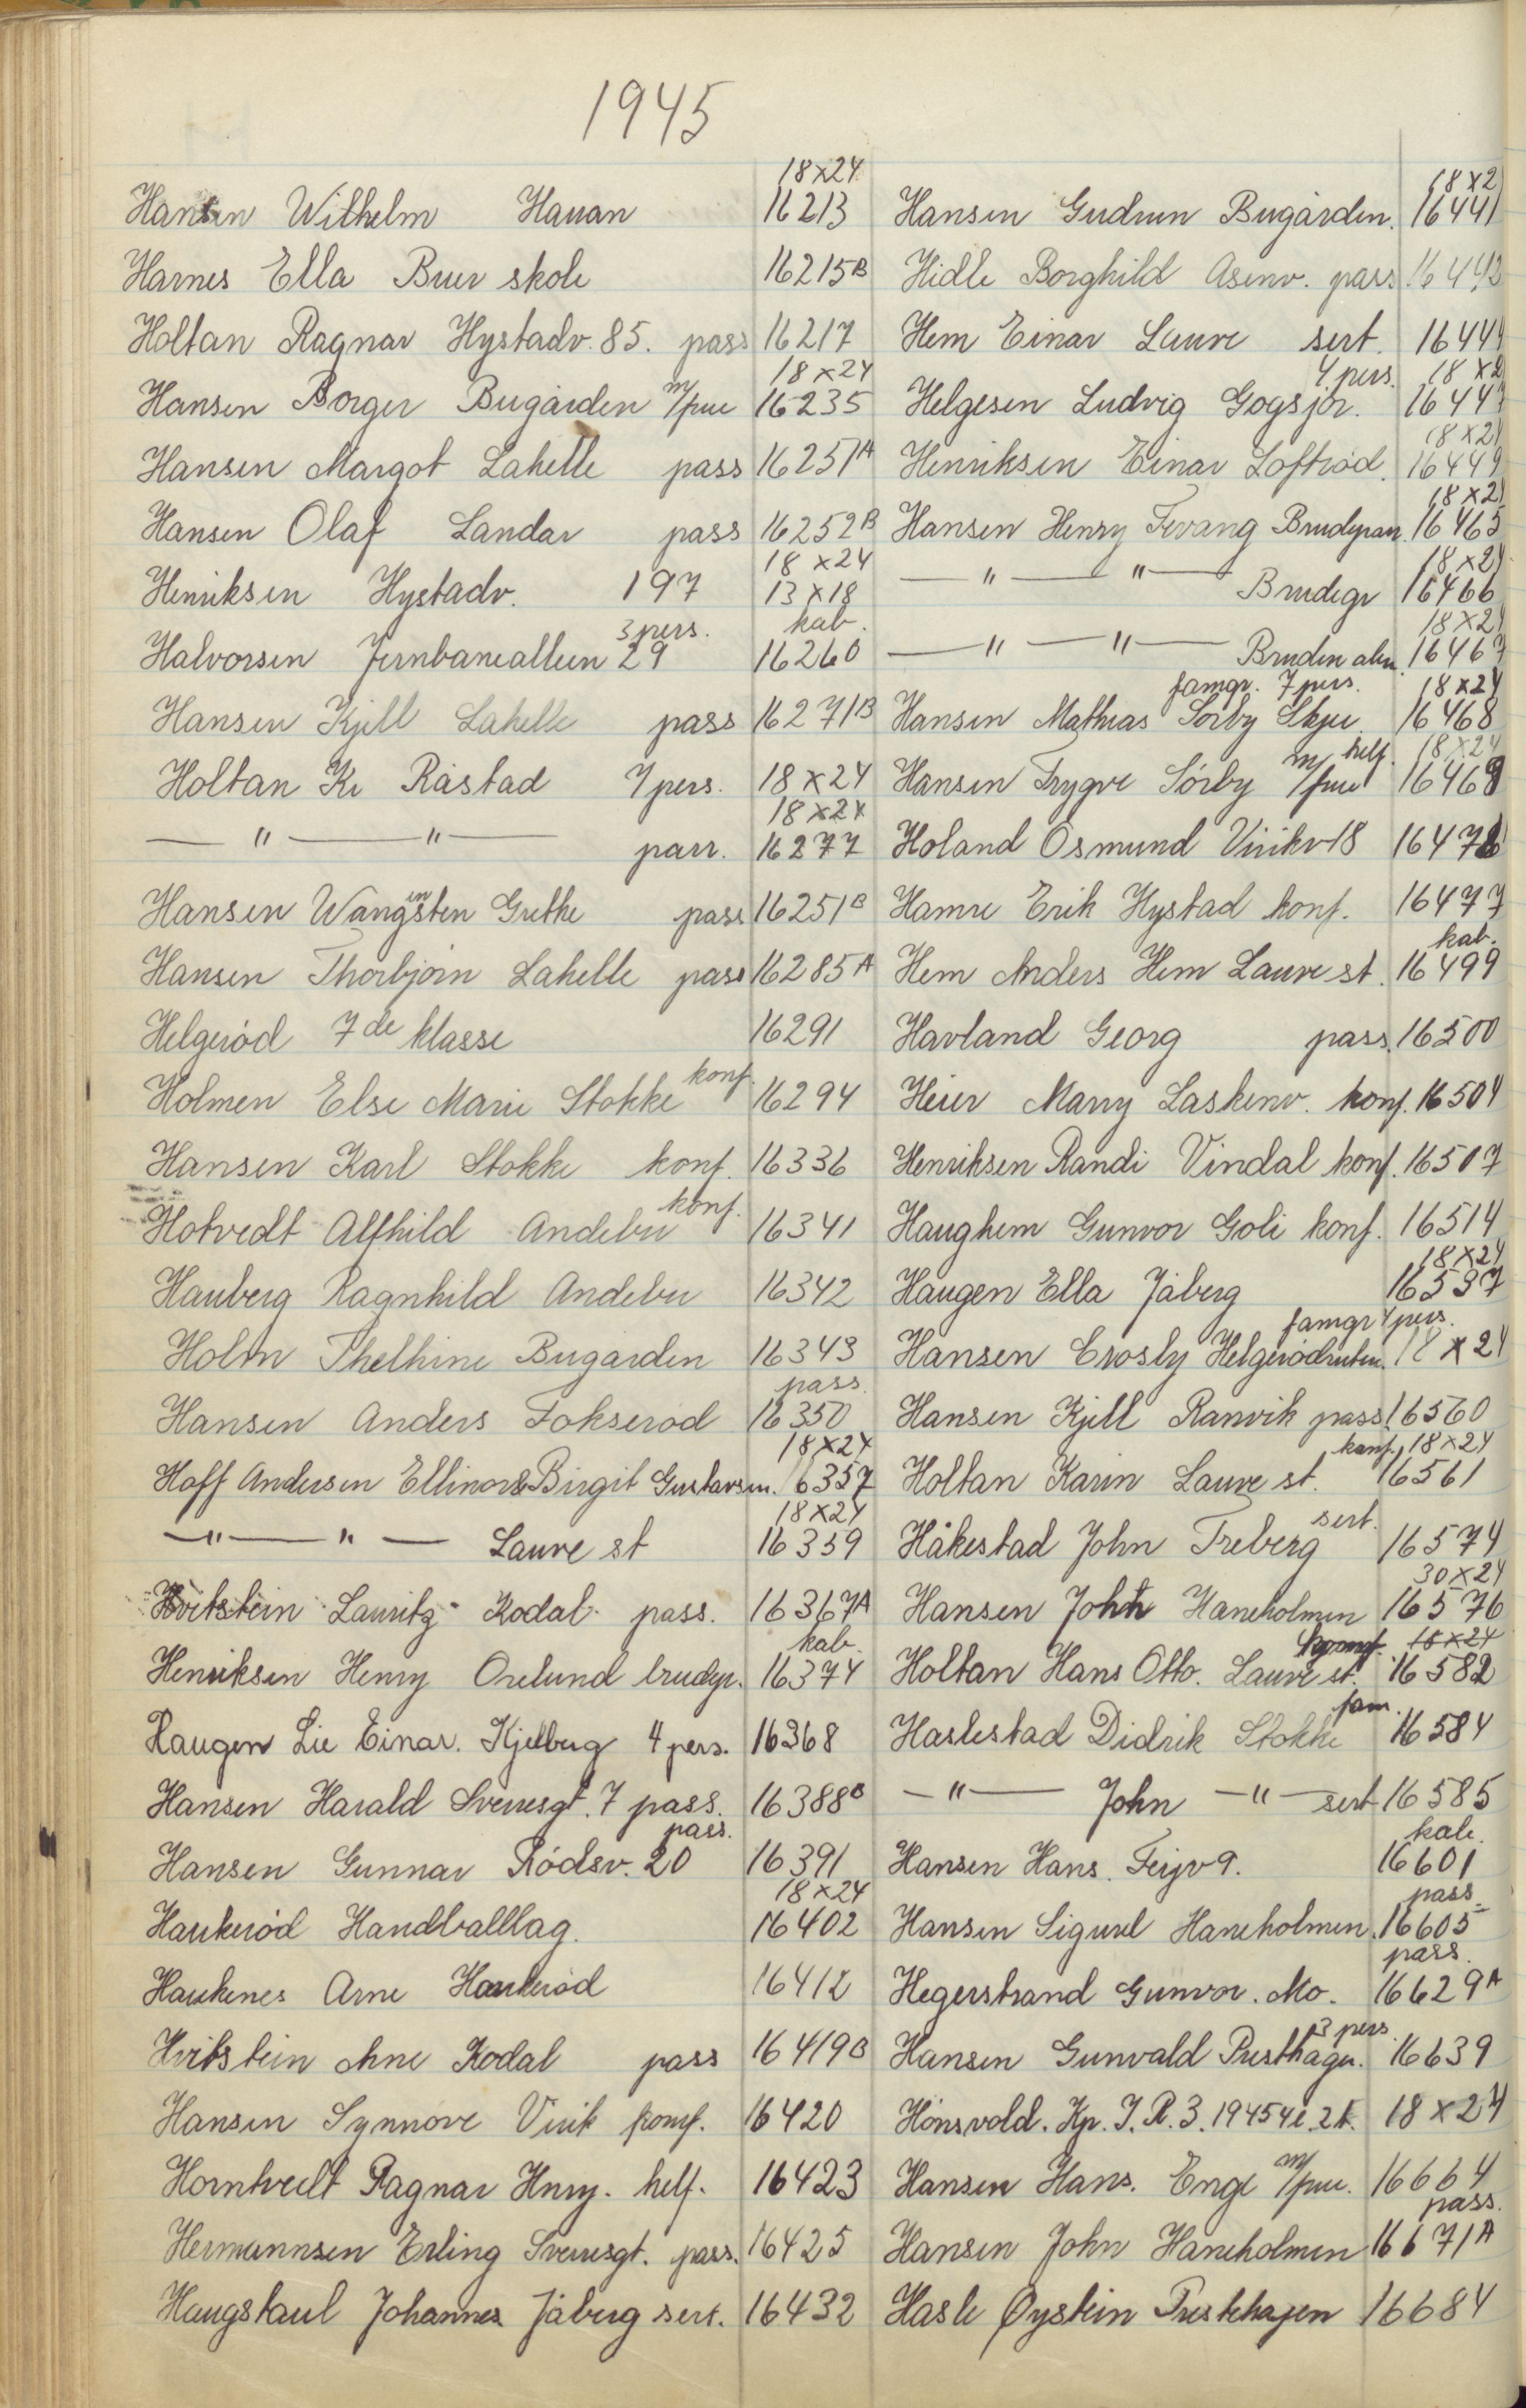 1945
18x24
Hansen Wilhelm Hauan 16213
Harnes Ella Buer skole 16215B
Holtan Ragnar Hystadv. 85. pass 16217
18x24
Hansen Borger Bugården m/frue 16235
Hansen Margot Lahelle pass 16251A
Hansen Olaf Landar pass 16252B
18x24
Henriksen Hystadv. 197 13x18
3 pers. kab.
Halvorsen Jernbanealleen 29 16260
Hansen Kjell Lahelle pass 16271B
Holtan Kr Råstad 7 pers. 18x24
18x24
—"——"— parr. 16277
in
Hansen Wangsten Grethe pass 16251B
Hansen Thorbjörn Lahelle pass 16285A
Helgeröd 7de klasse 16291
Holmen Else Marie Stokke konf. 16294
Hansen Karl Stokke konf. 16336
Hotvedt Alfhild Andebu konf. 16341
Hauberg Ragnhild Andebu 16342
Holm Thelhine Bugarden 16343
pass.
Hansen Anders Fokseröd 16350
18x24
Hoff Andersen Ellinor & Birgit Gustavsen. 16357
18x24
—"——"— Lauve st 16359
Hvitstein Lauritz Kodal pass. 16367A
kab.
Henriksen Henry Orelund brudep. 16374
Haugen Lie Einar. Kjelberg 4 pers. 16368
Hansen Harald Sverresgt. 7 pass. 16388B
pass.
Hansen Gunnar Rödsv. 20 16391
18x24
Haukeröd Handballlag. 16402
Haukenes Arne Haukeröd 16412
Hvitstein Arne Kodal pass 16419B
Hansen Synnöve Virik konf. 16420
Horntvedt Ragnar Hnry. helf. 16423
Hermannsen Erling Sverresgt. pass. 16425
Haugstaul Johannes Jåberg sert. 16432
18x2
Hansen Gudrun Bugården. 16441
Hidle Borghild Åsenv. pass 16443
Hem Einar Lauve sert. 16444
4 pers. 18x2
Helgesen Ludvig Gogsjör. 1644
18x2
Henriksen Einar Loftröd. 16449
18x2
Hansen Henry Fevang Brudepar. 16465
18x2
—"——"— Brudegr 16466
18x2
—"——"— Bruden alen. 16467
famgr. 7 pers. 18x24
Hansen Mathias Sörby Skjee 16468
m/ helf. 18x24
Hansen Trygve Sörby frue 16469
Holand Osmund Virikv 18 1647
Hamre Erik Hystad konf. 16477
kab.
Hem Anders Hem Lauve st. 16499
Havland Georg pass. 16500
Heier Marry Laskenv. konf. 16504
Henriksen Randi Vindal konf. 16507
Haughem Gunvor Goli konf. 16514
18x24
Haugen Ella Jåberg 16537
famgr 4 pers.
Hansen Crosby Helgerödruten. 18x24
Hansen Kjell Ranvik pass. 16560
konf. 18x24
Holtan Karin Lauve st. 16561
sert.
Håkestad John Treberg 16574
30x24
Hansen John Haneholmen 16576
18x24
Holtan Hans Otto. Lauve st. 16582
fam.
Haslestad Didrik Stokke 16584
—"— John —"— sert 16585
kab.
Hansen Hans. Ferjv 9. 16601
pass
Hansen Sigurd Haneholmen. 16605
pass.
Hegerstrand Gunvor. Mo. 16629A
3 pers.
Hansen Gunvald Presthagen. 16639
Hönsvold. Kp. J. R. 3. 1945 4l. 2t. 18x24
Hansen Hans. Enge m/frue. 16664
pass.
Hansen John Haneholmen 16671A
Hasle Øystein Prestehagen 16684